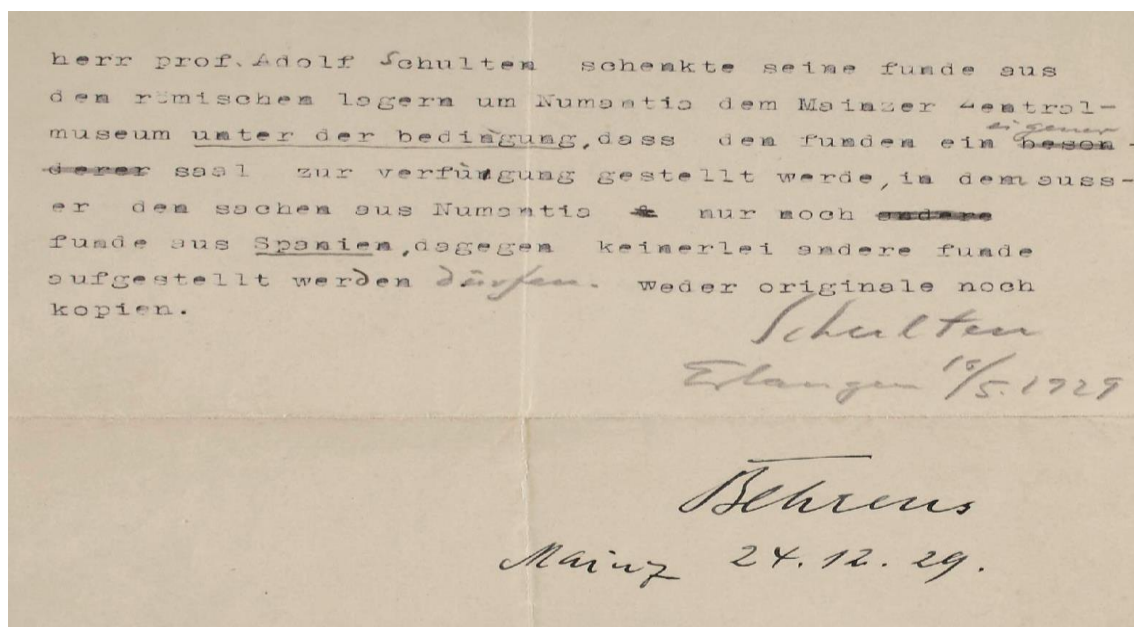 herr prof. Adolf Schulten schenkte seine funde aus
den römischen lagern um Numantia dem Mainzer Zentral-
museum unter der bedingung, dass den funden ein eigener
saal zur verfügung gestellt werde, in dem auss-
er den sachen aus Numantia nur noch
funde aus Spanien, dagegen keinerlei andere funde
aufgestellt werden dürfen. weder originale noch
kopien.
Schulten
Erlangen 18/5.1929
Behrens
Mainz 24.12.29.